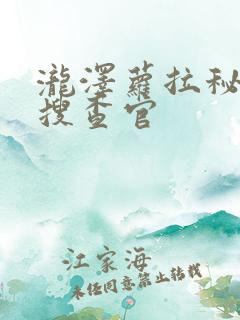 瀧澤蘿拉秘
搜查官
江家海
未经同意禁止转载